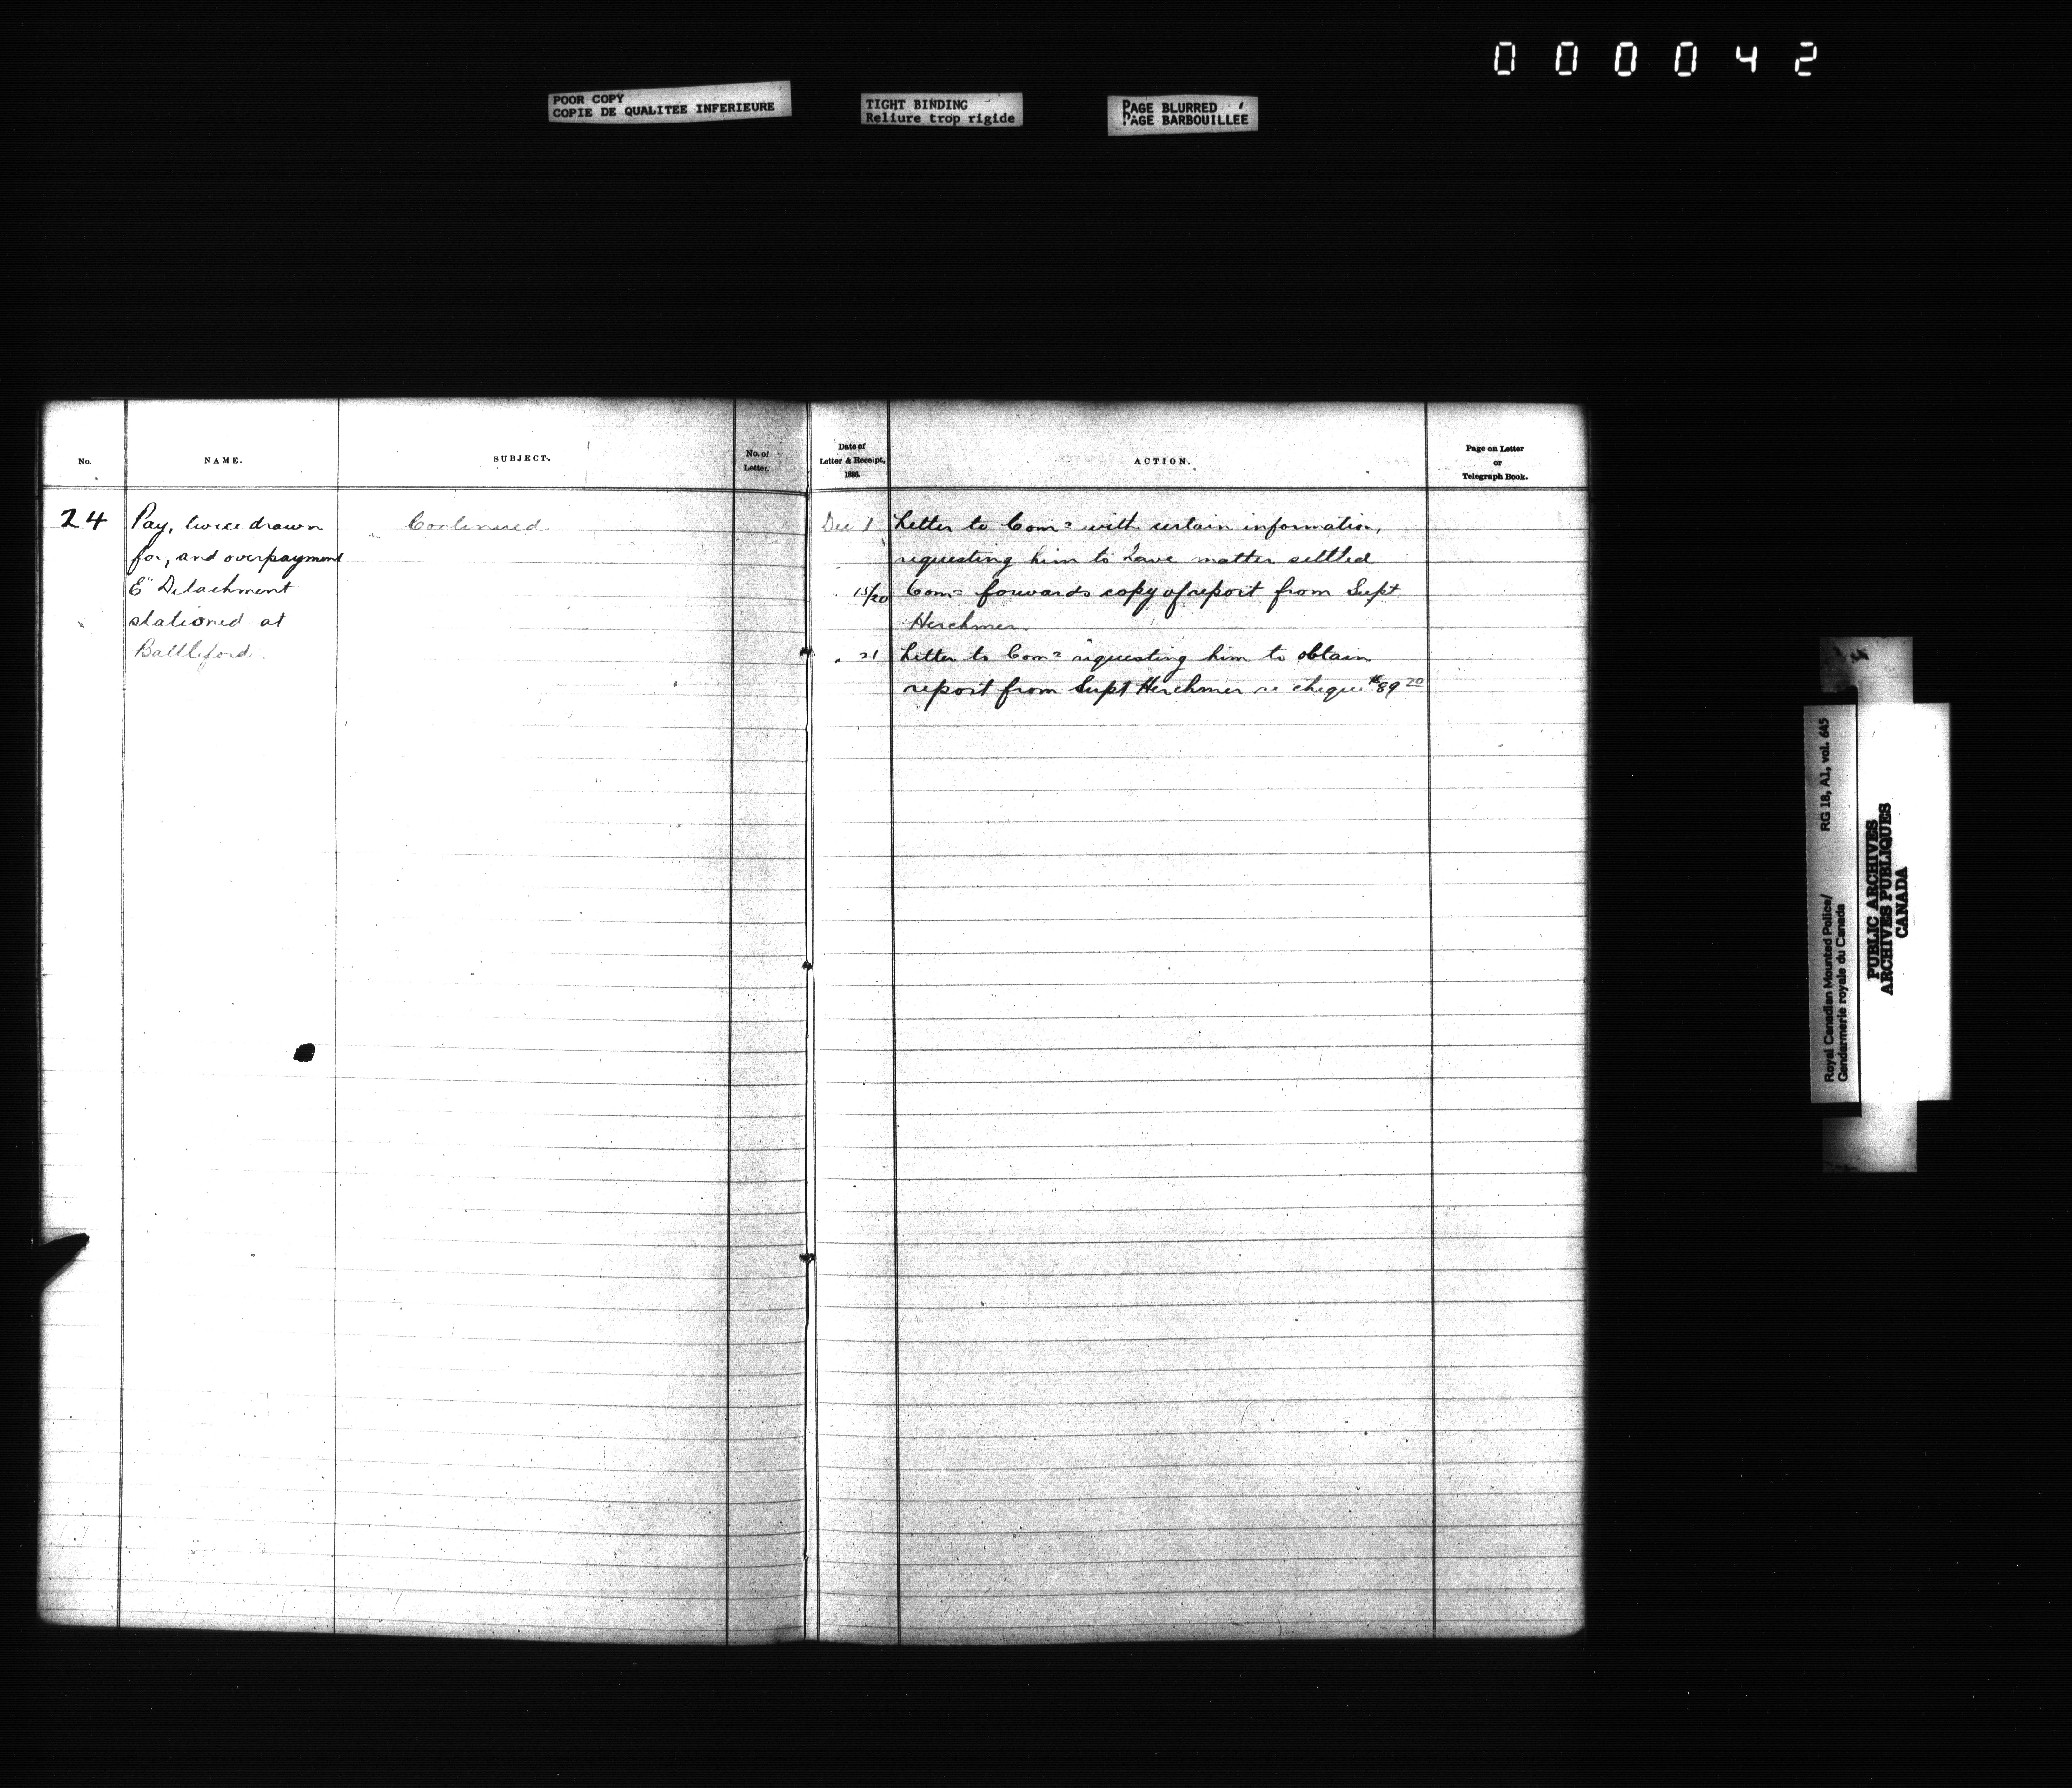 000042
POOR COPY
COPIE DE QUALITEE INFERIEURE
TIGHT BINDING
Reliure trop rigide
PAGE BLURRED
PAGE BARBOUILLEE
No.
NAME.
SUBJECT.
No. of
Letter.
Date of
Letter & Receipt,
1886.
ACTION.
Page on Letter
or
Telegraph Book.
24
Pay, twice drawn
for, and overpayment
E" Detachment
stationed at
Battleford.
Continued
Dec 7 Letter to Comr with certain information,
requesting him to have matter settled
15/20 Comr forwards copy of report from Supt
Herchmer.
" 21 Letter to Comr requesting him to obtain
report from Supt Herchmer re cheque $89 20
RG 18, A1, vol. 645
Royal Canadian Mounted Police/
Gendarmerie royale du Canada
PUBLIC ARCHIVES
ARCHIVES PUBLIQUES
CANADA